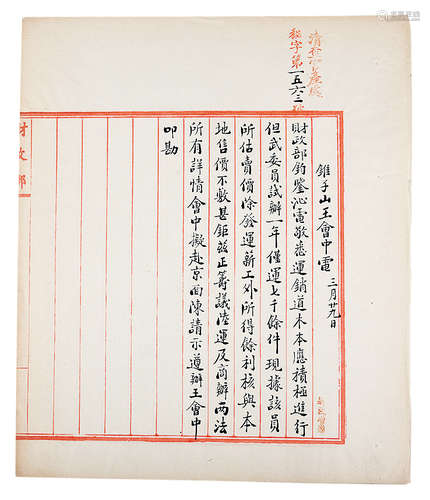 清查官產處
秘字第一五六三號
錐子山王會中電 三月廿九日
財政部鈞鑒沁電敬悉運銷道木本應積極進行
但武委員試辦一年僅運七千餘件現據該員
所估賣價除發運薪工外所得餘利核與本
地售價不敷甚鉅茲正籌議陸運及商辦兩法
所有詳情會中擬赴京面陳請示遵辦王會中
叩勘
財政部